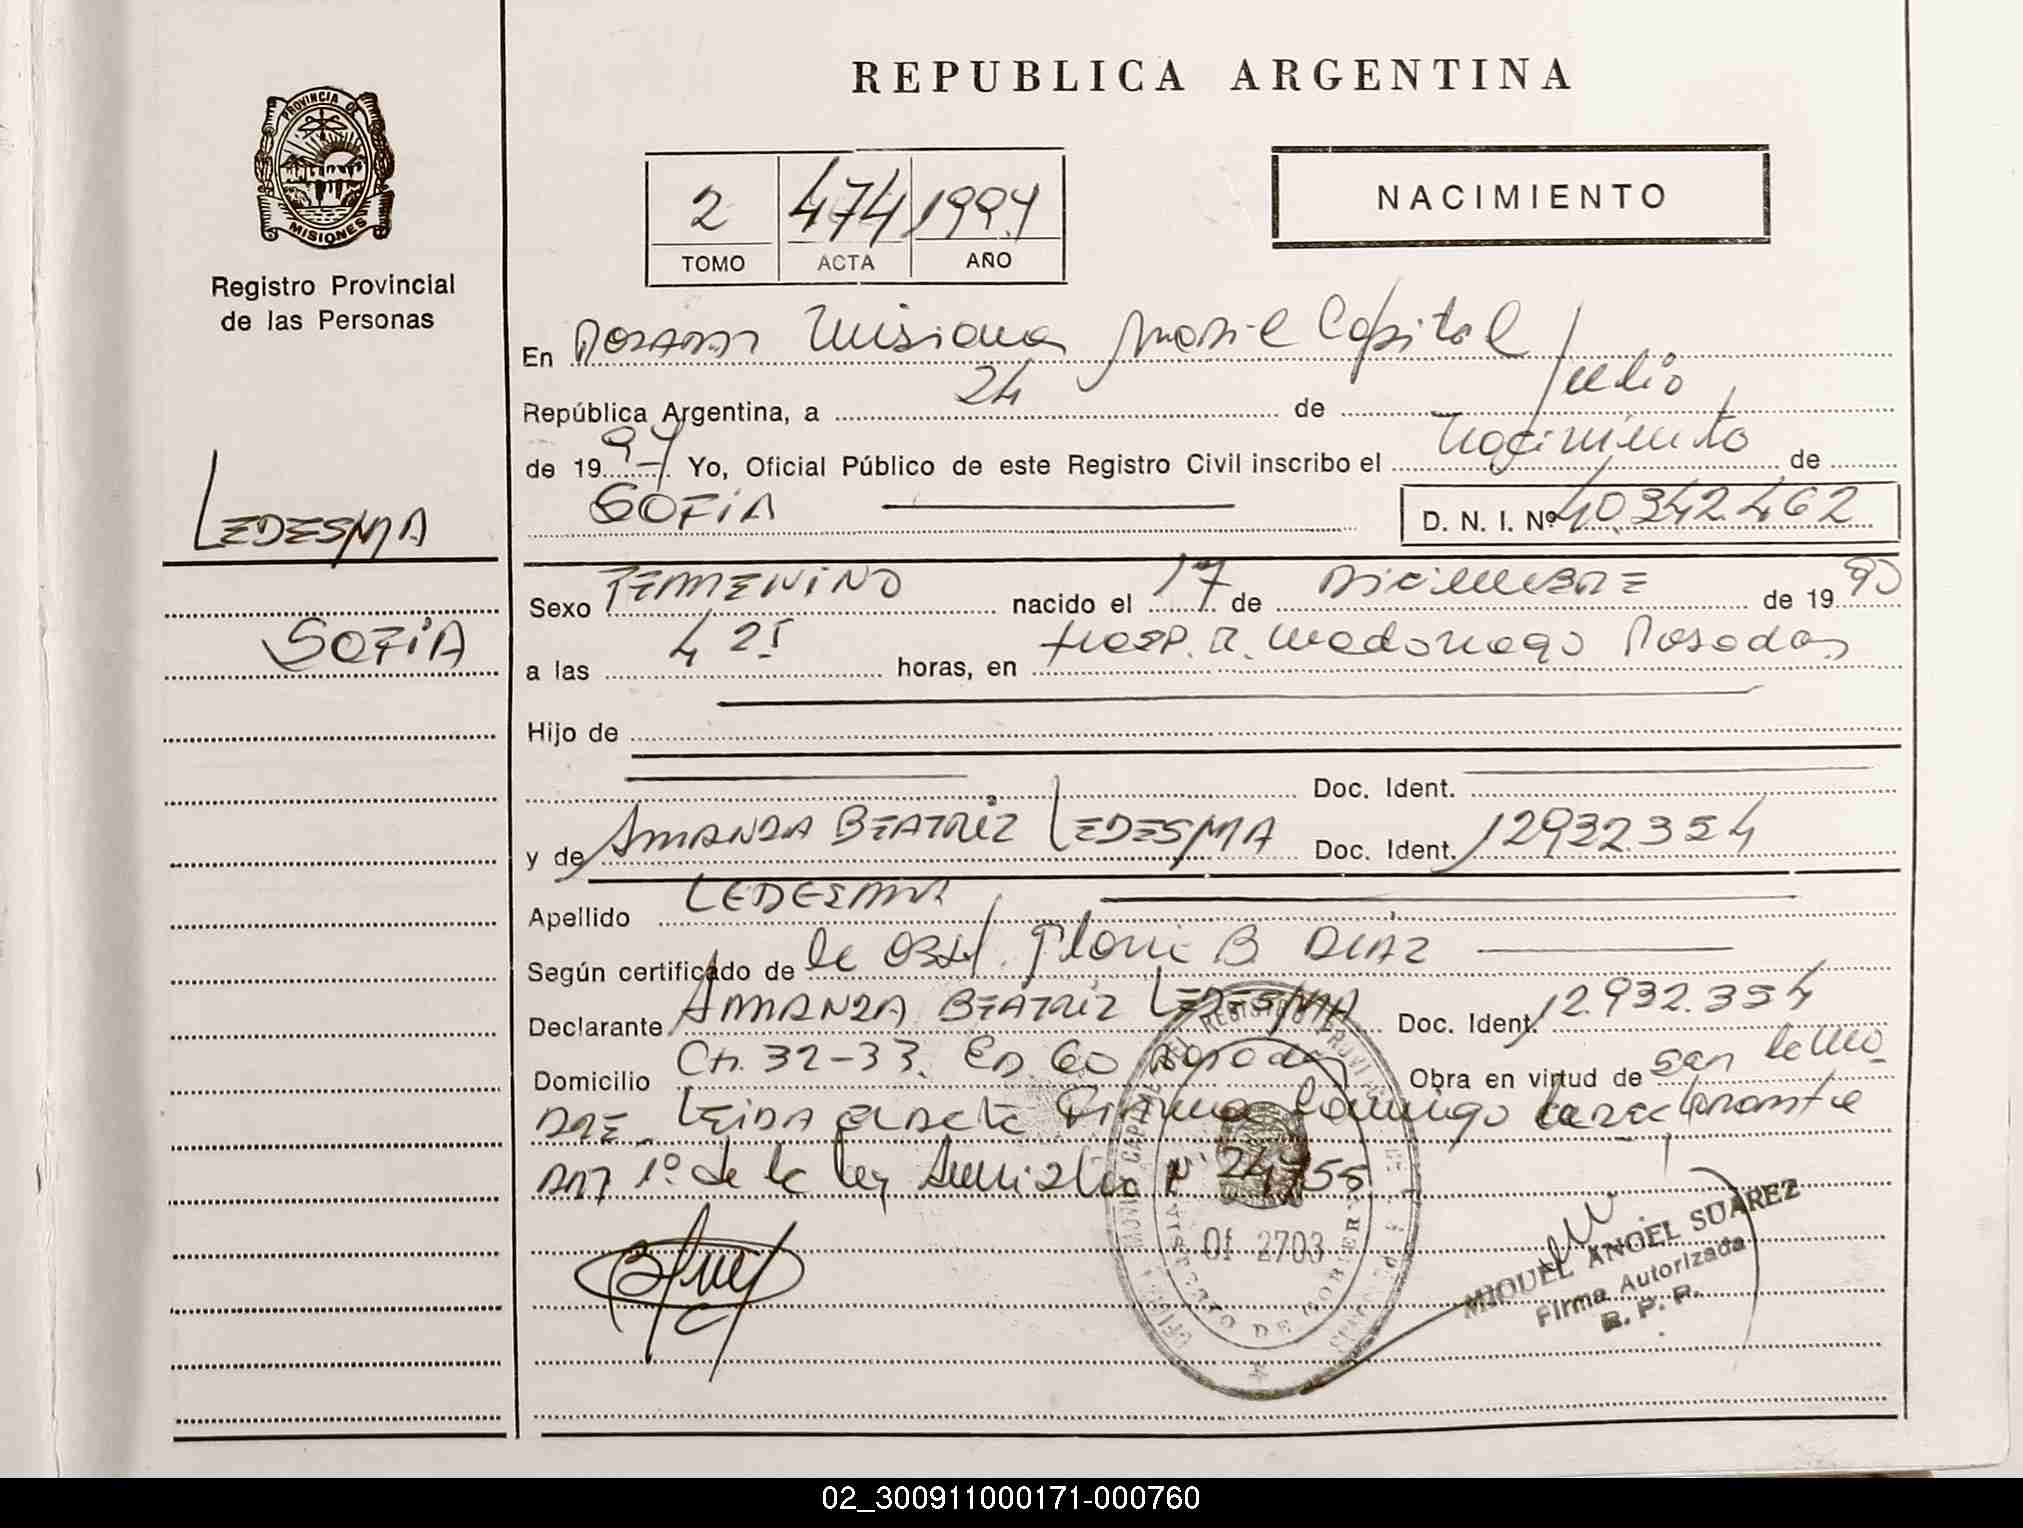 REPUBLICA ARGENTINA
PROVINCIA DE
MISIONES
Registro Provincial
de las Personas
2 474 1997
TOMO ACTA AÑO
NACIMIENTO
En Posadas Misiones Capital
República Argentina, a 24 de Julio
de 1997 Yo, Oficial Público de este Registro Civil inscribo el nacimiento de
SOFIA D. N. I. Nº 40.342.462
LEDESMA
SOFIA
Sexo FEMENINO nacido el 17 de DICIEMBRE de 1990
a las 4 25 horas, en Hosp. R. Madariaga Posadas
Hijo de
Doc. Ident.
y de AMANDA BEATRIZ LEDESMA Doc. Ident. 12932.354
Apellido LEDESMA
Según certificado de la Obst. B. DIAZ
Declarante AMANDA BEATRIZ LEDESMA Doc. Ident. 12.932.354
Domicilio Ch. 32-33. Posadas Obra en virtud de su
Leida el Acta Firma Conmigo la declarante
1º de la ley Amnistia Nº 24755
Of 2703
MINISTERIO DE GOBIERNO
MIGUEL ANGEL SUAREZ
Firma Autorizada
R. P. P.
02_300911000171-000760